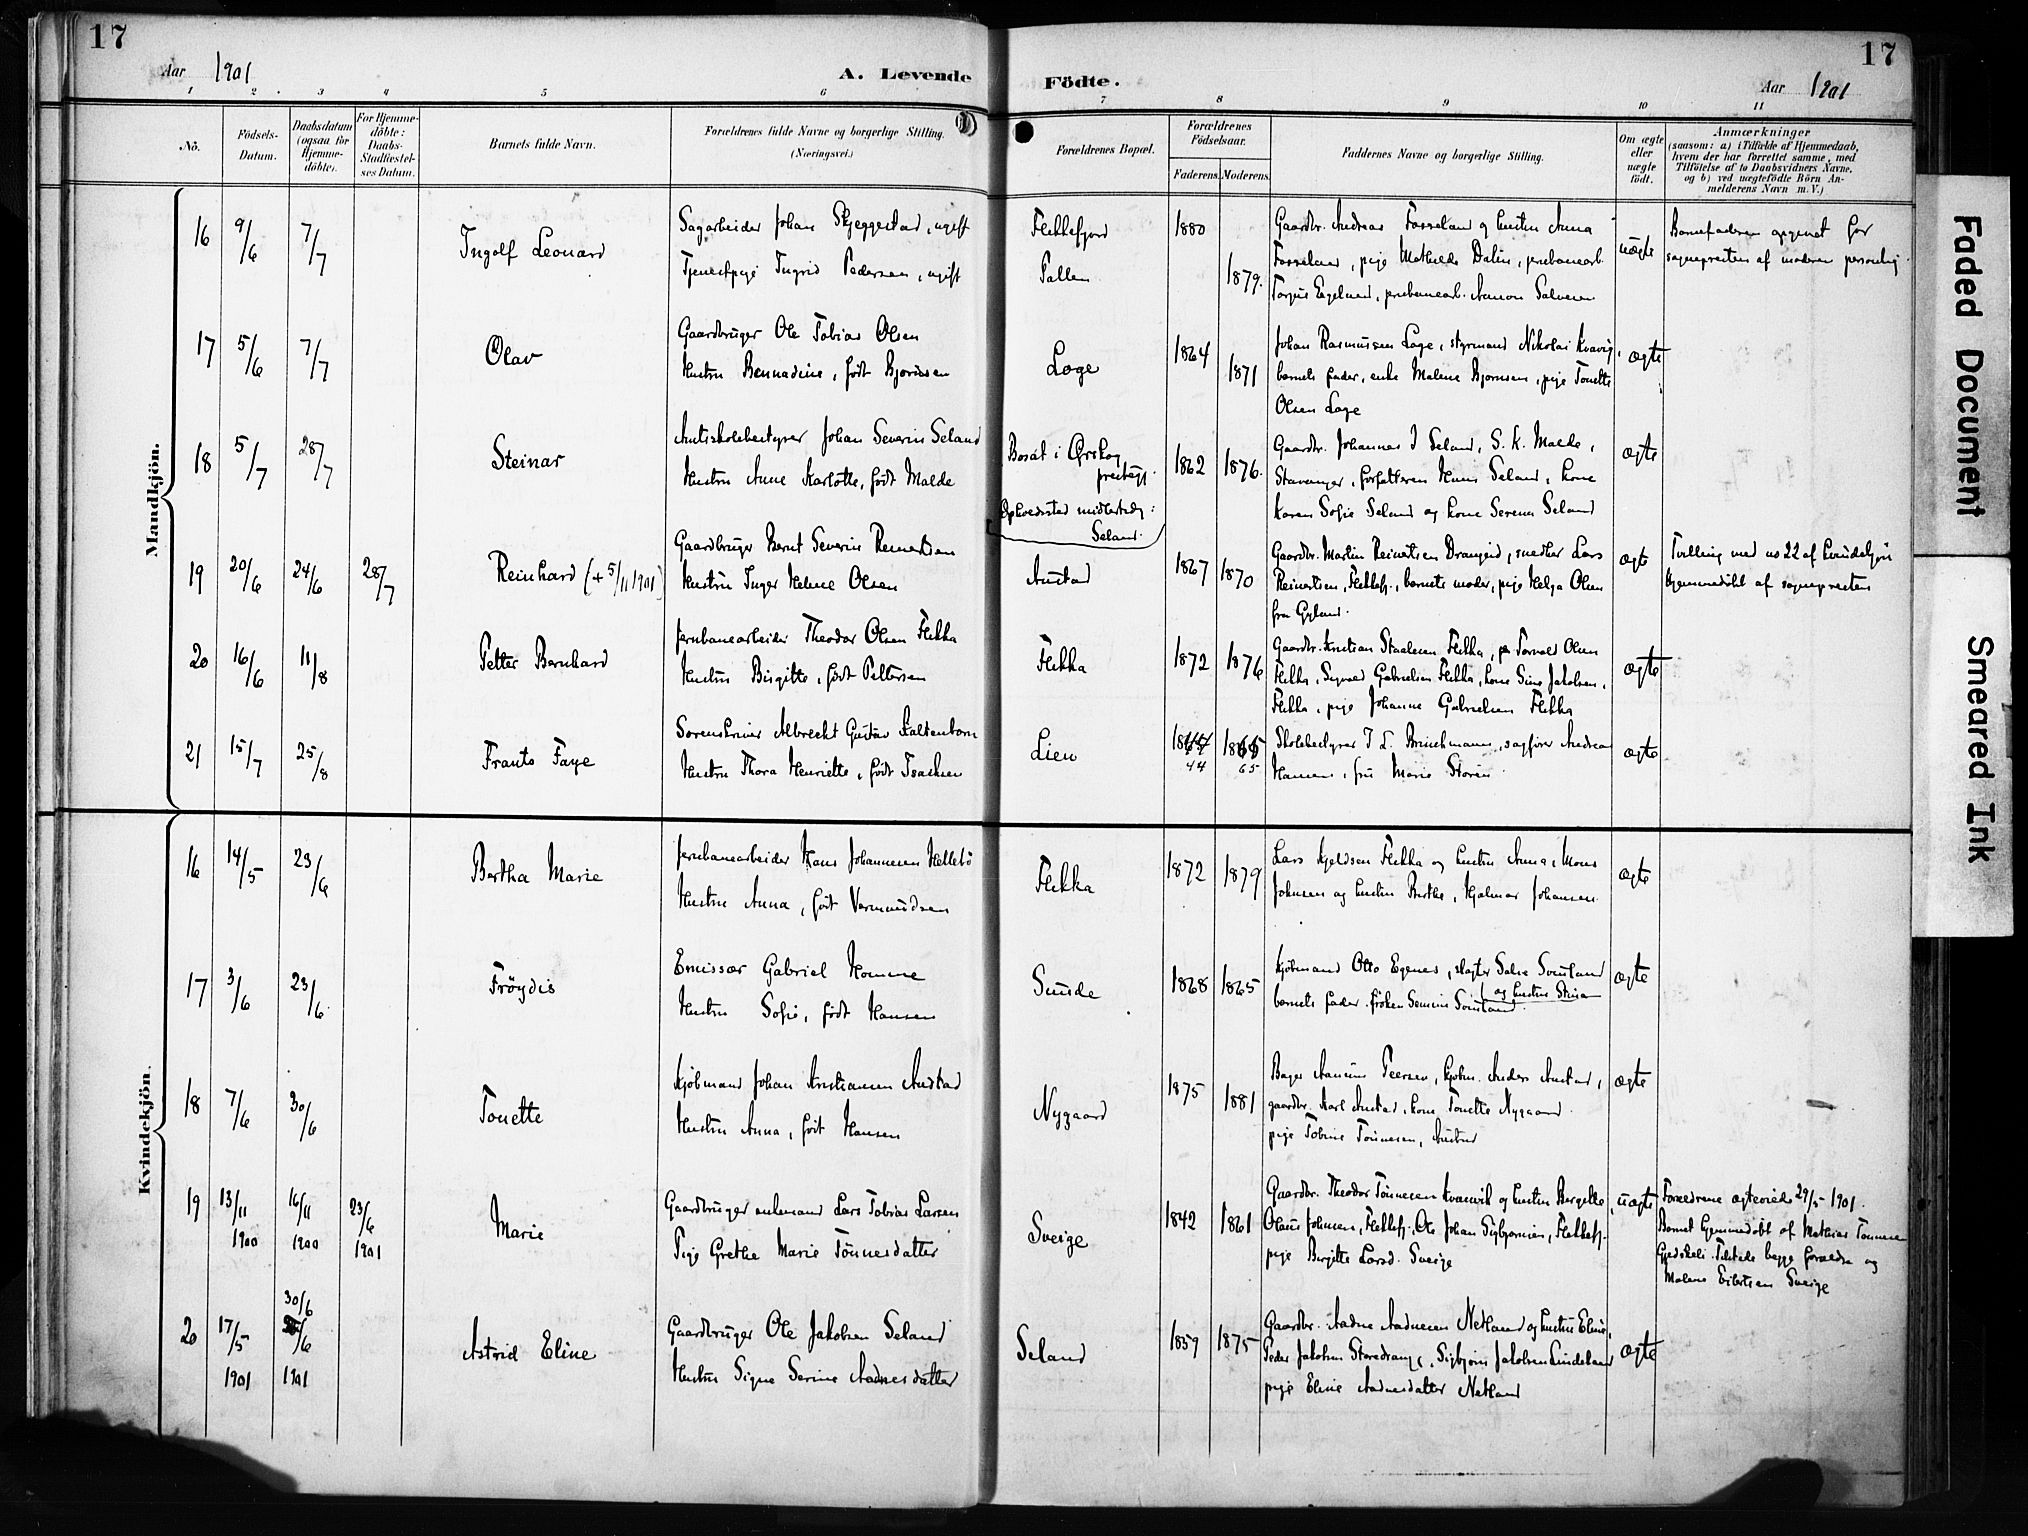 17
Aar 1901
A. Levende
Födte.
Aar 1901
17
1 2 3 4 5 6 7 8 9 10 11
Nô.
Födsels-
Datum.
Daabsdatum
(ogsaa for
Hjemme-
döbte).
For Hjemme-
döbte:
Daabs-
Stadfæstel-
ses Datum.
Barnets fulde Navn.
Forældrenes fulde Navne og borgerlige Stilling.
(Næringsvei.)
Forældrenes Bopæl.
Forældrenes
Födselsaar.
Faderens. Moderens.
Faddernes Navne og borgerlige Stilling.
Om ægte
eller
uægte
födt.
Anmærkninger
(saasom: a) i Tilfælde af Hjemmedaab,
hvem der har forrettet samme, med
Tilföielse af to Daabsvidners Navne,
og b) ved uægtefödte Börn An-
melderens Navn m. V.)
Mandkjön.
16 9/6 7/7 Ingolf Leonard
Sagarbeider Johan Skjeggestad, ugift
Tjenestpige Ingrid Pedersen, ugift
Flekkefjord
1880 1879.
Gaardbr. Andreas Fosseland og hustru Anna
Fosseland, pige Mathilde Dalin, jernbanearb.
uægte
Barnefaderen opgivet for
sognepresten af moderen personlig.
17 5/6 7/7 Olav
Gaardbruger Ole Tobias Olsen
Hustru Bernadine, født Bjørnsen
Loge
1864 1871
Johan Rasmussen Loge, styrmand Nikolai Kvavig,
barnets fader, enke Malene Bjørnsen, pige Tonette
Olsen Loge
ægte
18 5/7 28/7 Steinar
Amtsskolebestyrer Johan Severin Seland
Hustru Anne Karlotte, født Malde
Bosat i Ørskog
prestegj.
Opholdssted midlertidig:
Seland.
1862 1876.
Gaardbr. Johannes J Seland, S. K. Malde,
Stavanger, forfatteren Hans Seland, kone
Karen Sofie Seland og kone Serena Seland
ægte
19 20/6 24/6 28/7 Reinhard (+ 5/11 1901)
Gaardbruger Bernt Severin Reinertsen
Hustru Inger Helene Olsen
Austad
1867 1870
Gaardbr. Martin Reinertsen Drangeid, snedker Lars
Reinertsen, Flekkefj., barnets moder, pige Helga Olsen
fra Gyland.
ægte
Tvilling med no 22 af kvindekjøn
Hjemmedøbt af sognepresten
20 16/6 11/8 Petter Bernhard
Jernbanearbeider Theodor Olsen Flikka
Hustru Birgitte, født Pettersen
Flikka
1872 1876
Gaardbr. Kristian Staalesen Flikka, Torvald Olsen
Flikka, Sigvald Gabrielsen Flikka, kone Sine Jakobsen,
Flikka, pige Johanne Gabrielsen Flikka
ægte
21 15/7 25/8 Frants Faye
Sorenskriver Albrecht Gustav Kaltenborn
Hustru Thora Henriette, født Isachsen
Lien
44 65
Skolebestyrer J L. Brinchmann, sagfører Andreas
Hansen, fru Marie Storm
ægte
Kvindekjön.
16 14/5 23/6 Bertha Marie
Jernbanearbeider Hans Johannesen Hellebø
Hustru Anna, født Vermundsen
Flikka
1872 1879
Lars Kjeldsen Flikka og hustru Anna, Mons
Johnsen og hustru Berthe, Hjalmar Johansen
ægte
17 3/6 23/6 Frøydis
Emissær Gabriel Homme
Hustru Sofie, født Hansen
Sunde
1868 1865
Kjøbmand Otto Egenes, slagter Salve
og hustru Stina
barnets fader, frøken
ægte
18 7/6 30/6 Tonette
Kjøbmand Johan Kristiansen Austad
Hustru Anna, født Hansen
Nygaard
1875 1881
Bager Peersen, kjøbm. Anders Austad,
gaardbr. Karl Austad, kone Tonette Nygaard
pige Tobine Tønnesen, Austad
ægte
19 13/11 1900 16/11 1900 23/6 1901 Marie
Gaardbruger enkemand Lars Tobias Larsen
Pige Grethe Marie Tönnesdatter
Sveige
1842 1861
Gaardbr. Theodor Tønnesen Kvanvik og hustru Bergette,
Olaus Johnsen, Flekkefj., Ole Johan Sigbjørnsen, Flekkefj.
pige Birgitte Larsd. Sveige
uægte
Forældrene ægteviede 29/5 1901.
Barnet hjemmedøbt af Mathias Tønnesen
Tilstede begge forældre og
Malene Eilertsen Sveige
20 17/5 1901 30/6 1901 Astrid Eline
Gaardbruger Ole Jakobsen Seland
Hustru Signe Serine Aadnesdatter
Seland
1859 1875
Gaardbr. Aadne Aadnesen Netland og hustru Eline,
Peder Jakobsen Storedrange, Sigbjørn Jakobsen Lindeland
pige Eline Aadnesdatter Netland
ægte
Faded Document
Smeared Ink